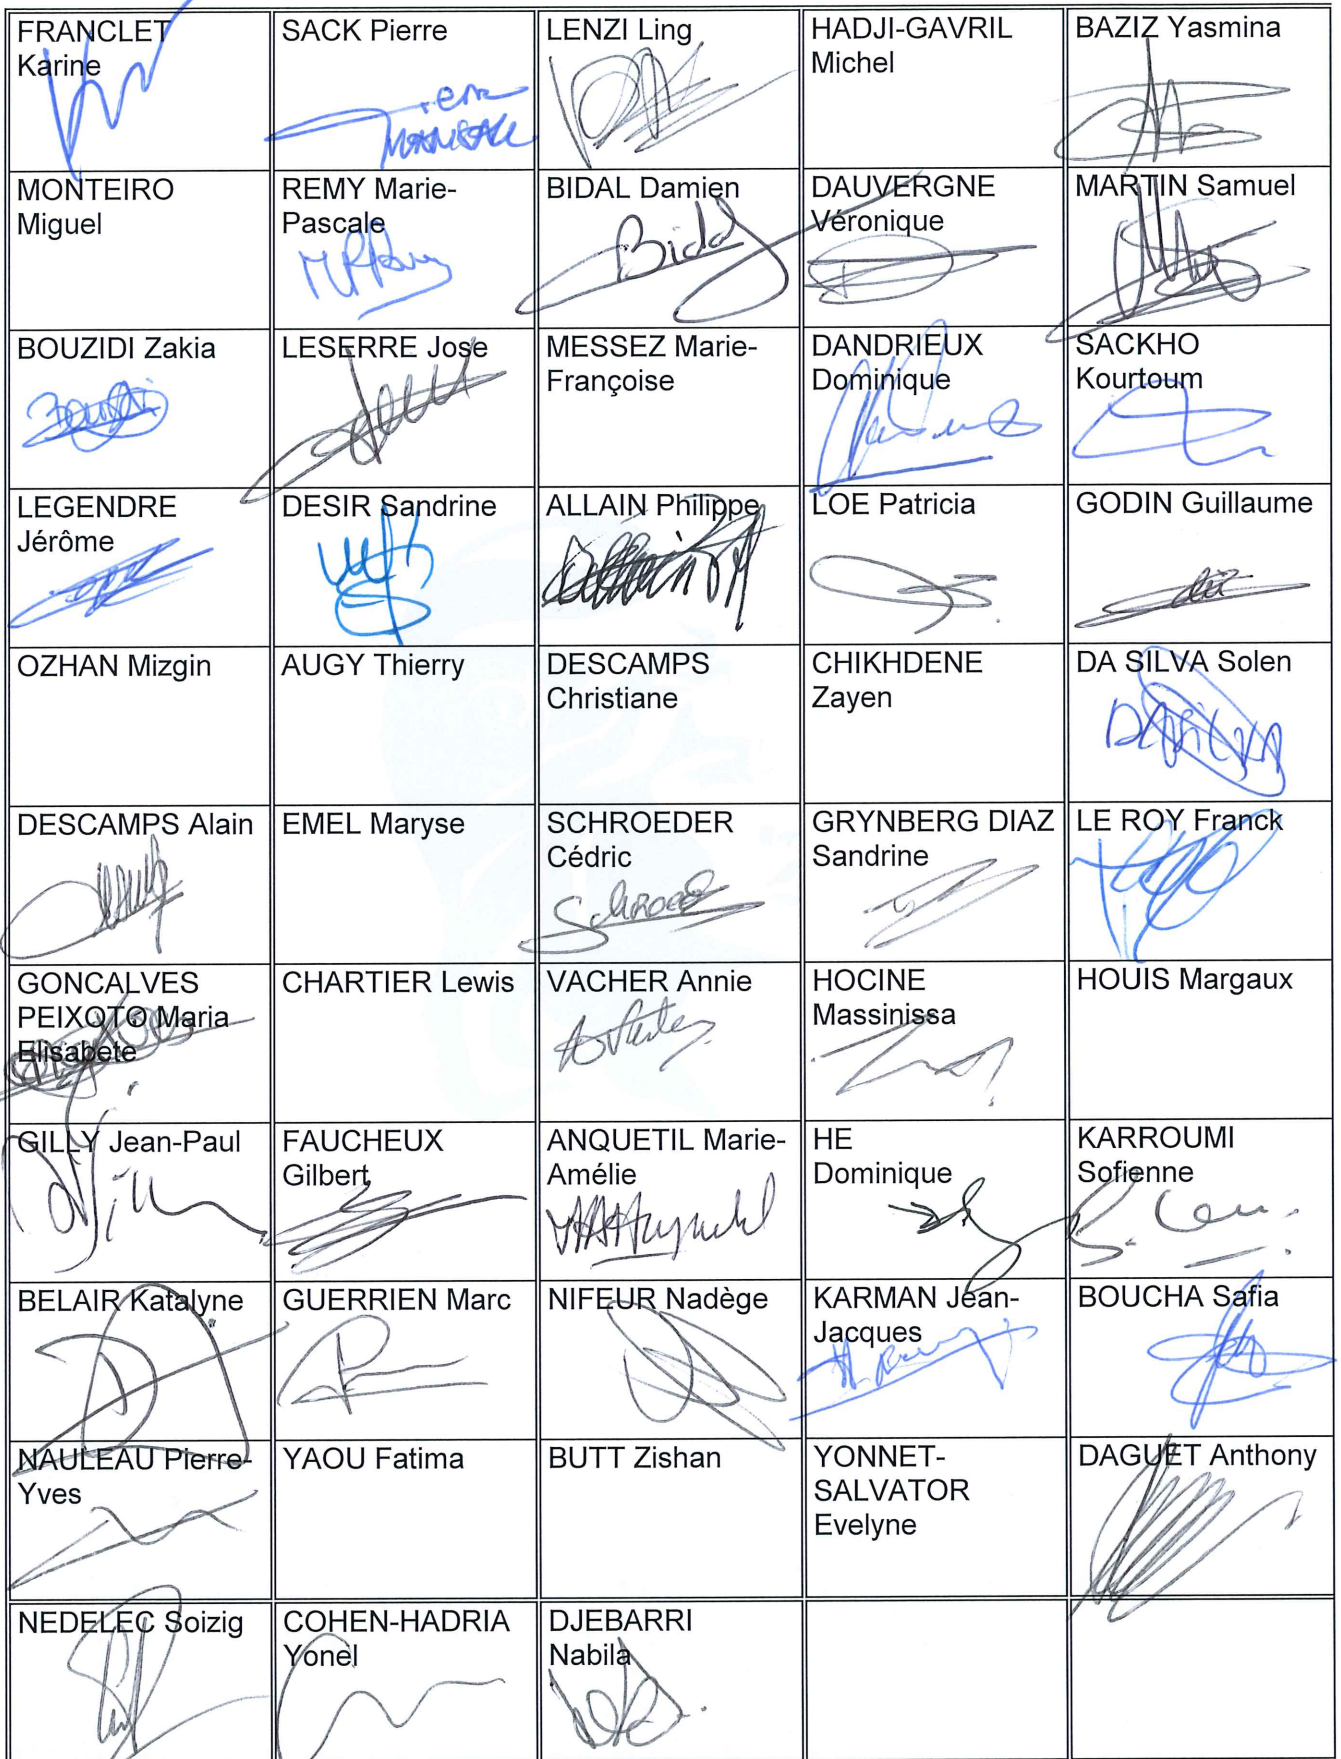 FRANCLET
Karine
SACK Pierre
LENZI Ling
HADJI-GAVRIL
Michel
BAZIZ Yasmina
MONTEIRO
Miguel
REMY Marie-
Pascale
BIDAL Damien
Bidal
DAUVERGNE
Véronique
MARTIN Samuel
BOUZIDI Zakia
LESERRE Jose
MESSEZ Marie-
Françoise
DANDRIEUX
Dominique
SACKHO
Kourtoum
LEGENDRE
Jérôme
DESIR Sandrine
ALLAIN Philippe
LOE Patricia
GODIN Guillaume
OZHAN Mizgin
AUGY Thierry
DESCAMPS
Christiane
CHIKHDENE
Zayen
DA SILVA Solen
DASILVA
DESCAMPS Alain
EMEL Maryse
SCHROEDER
Cédric
GRYNBERG DIAZ
Sandrine
LE ROY Franck
GONCALVES
PEIXOTO Maria
Elisabete
CHARTIER Lewis
VACHER Annie
HOCINE
Massinissa
HOUIS Margaux
GILLY Jean-Paul
FAUCHEUX
Gilbert
ANQUETIL Marie-
Amélie
HE
Dominique
KARROUMI
Sofienne
BELAIR Katalyne
GUERRIEN Marc
NIFEUR Nadège
KARMAN Jean-
Jacques
BOUCHA Safia
NAULEAU Pierre-
Yves
YAOU Fatima
BUTT Zishan
YONNET-
SALVATOR
Evelyne
DAGUET Anthony
NEDELEC Soizig
COHEN-HADRIA
Yonel
DJEBARRI
Nabila